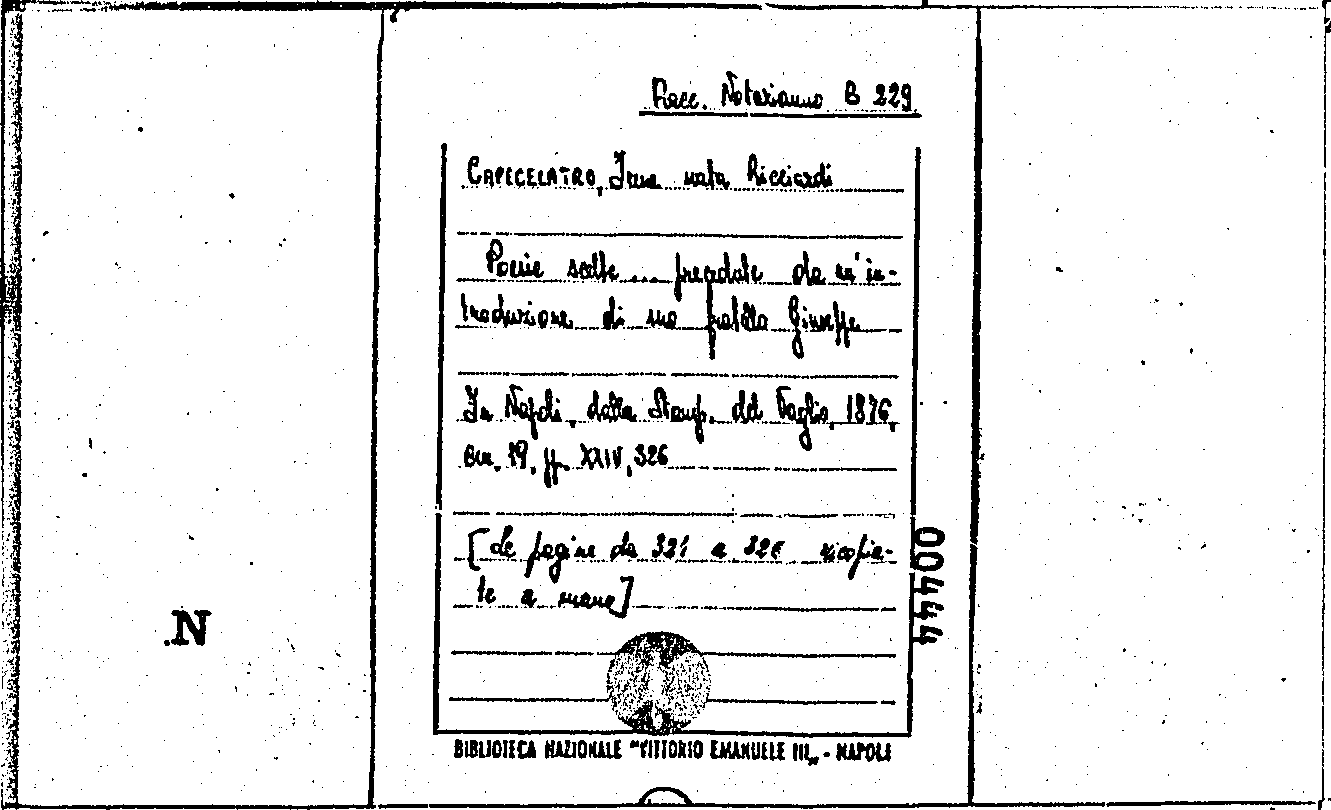 Racc. Notarianno B 229
CAPECELATRO, Irene nata Ricciardi
Poesie scelte ... precedute da un'in-
troduzione di suo fratello Giuseppe
In Napoli, dalla Stamp. del Vaglio, 1876,
cm. 19, pp. XXIV, 326
[Le pagine da 321 a 326 ricopia-
te a mano]
00444
.N
BIBLIOTECA NAZIONALE "VITTORIO EMANUELE III„ - NAPOLI